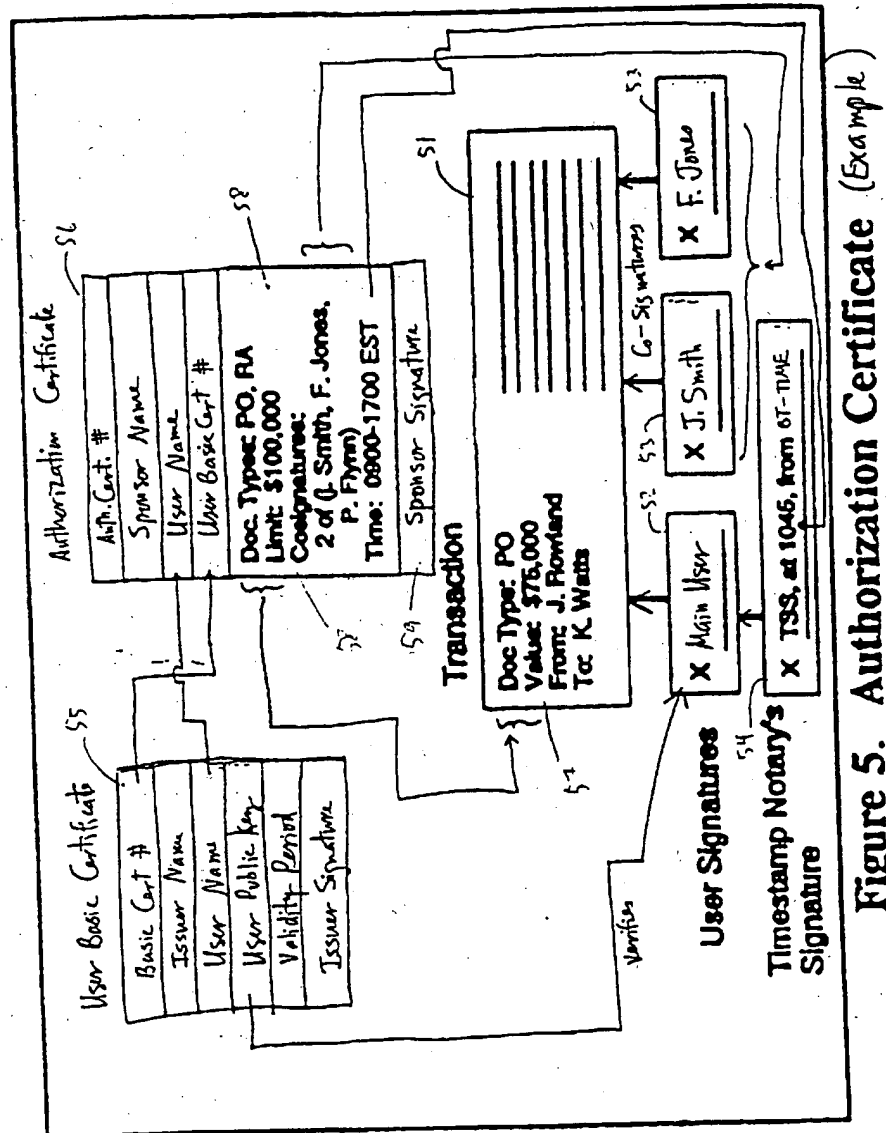 User Basic Certificate
55
Basic Cert #
Issuer Name
User Name
User Public Key
Validity Period
Issuer Signature
Authorization Certificate
56
Auth. Cert. #
Sponsor Name
User Name
User Basic Cert #
Doc. Types: PO, RA
Limit: $100,000
Cosignatures:
2 of (J. Smith, F. Jones,
P. Flynn)
Time: 0900-1700 EST
58
59
Sponsor Signature
Transaction
51
Doc Type: PO
Value: $75,000
From: J. Rowland
To: K. Watts
57
Verifies
Co-Signatures
User Signatures
52
X Main User
53
X J. Smith
53
X F. Jones
Timestamp Notary's
Signature
54
X TSS, at 1045, from
Figure 5. Authorization Certificate (Example)